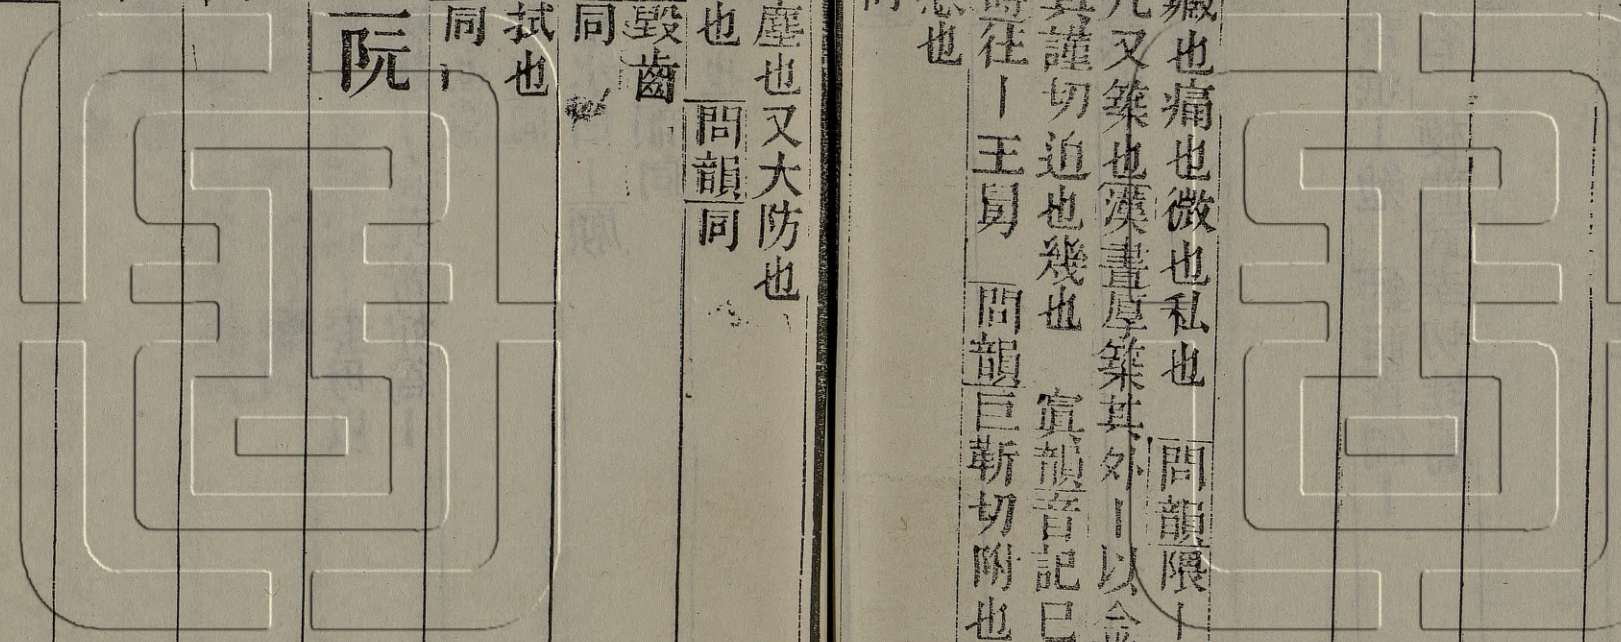 也痛也微也私也 問韻隱丨
又築也漢書厚築其外丨以金
謹切迫也幾也 寘韻音記已
往丨王舅 問韻巨靳切附也
也
塵也又大防也
也 問韻同
毀齒
同
拭也
同
阮